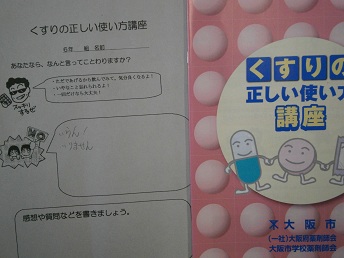 くすりの正しい使い方講座
6年　組　名前
あなたなら、なんと言ってことわりますか？
・ただであげるから飲んでみて。気分良くなるよ！
・いやなこと忘れられるよ！
・一回だけなら大丈夫！
いりません
感想や質問などを書きましょう。
くすりの
正しい使い方
講座
大阪市
(一社)大阪府薬剤師会
大阪市学校薬剤師会